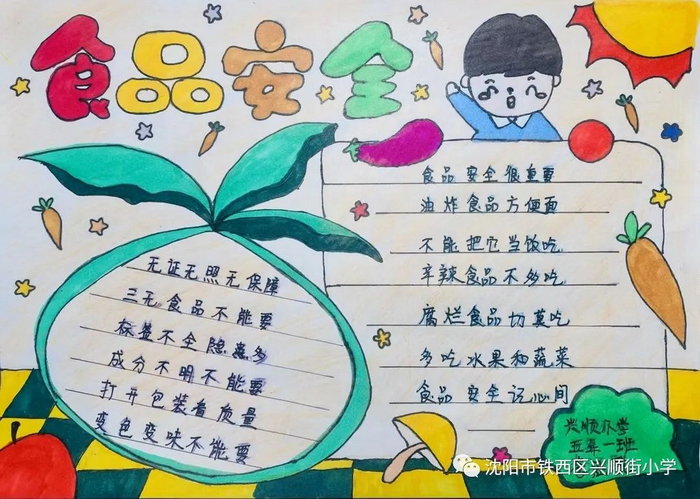 食品安全
无证无照无保障
三无食品不能要
标签不全隐患多
成分不明不能要
打开包装看质量
变色变味不能要
食品安全很重要
油炸食品方便面
不能把它当饭吃
辛辣食品不多吃
腐烂食品切莫吃
多吃水果和蔬菜
食品安全记心间
兴顺小学
五年一班
沈阳市铁西区兴顺街小学